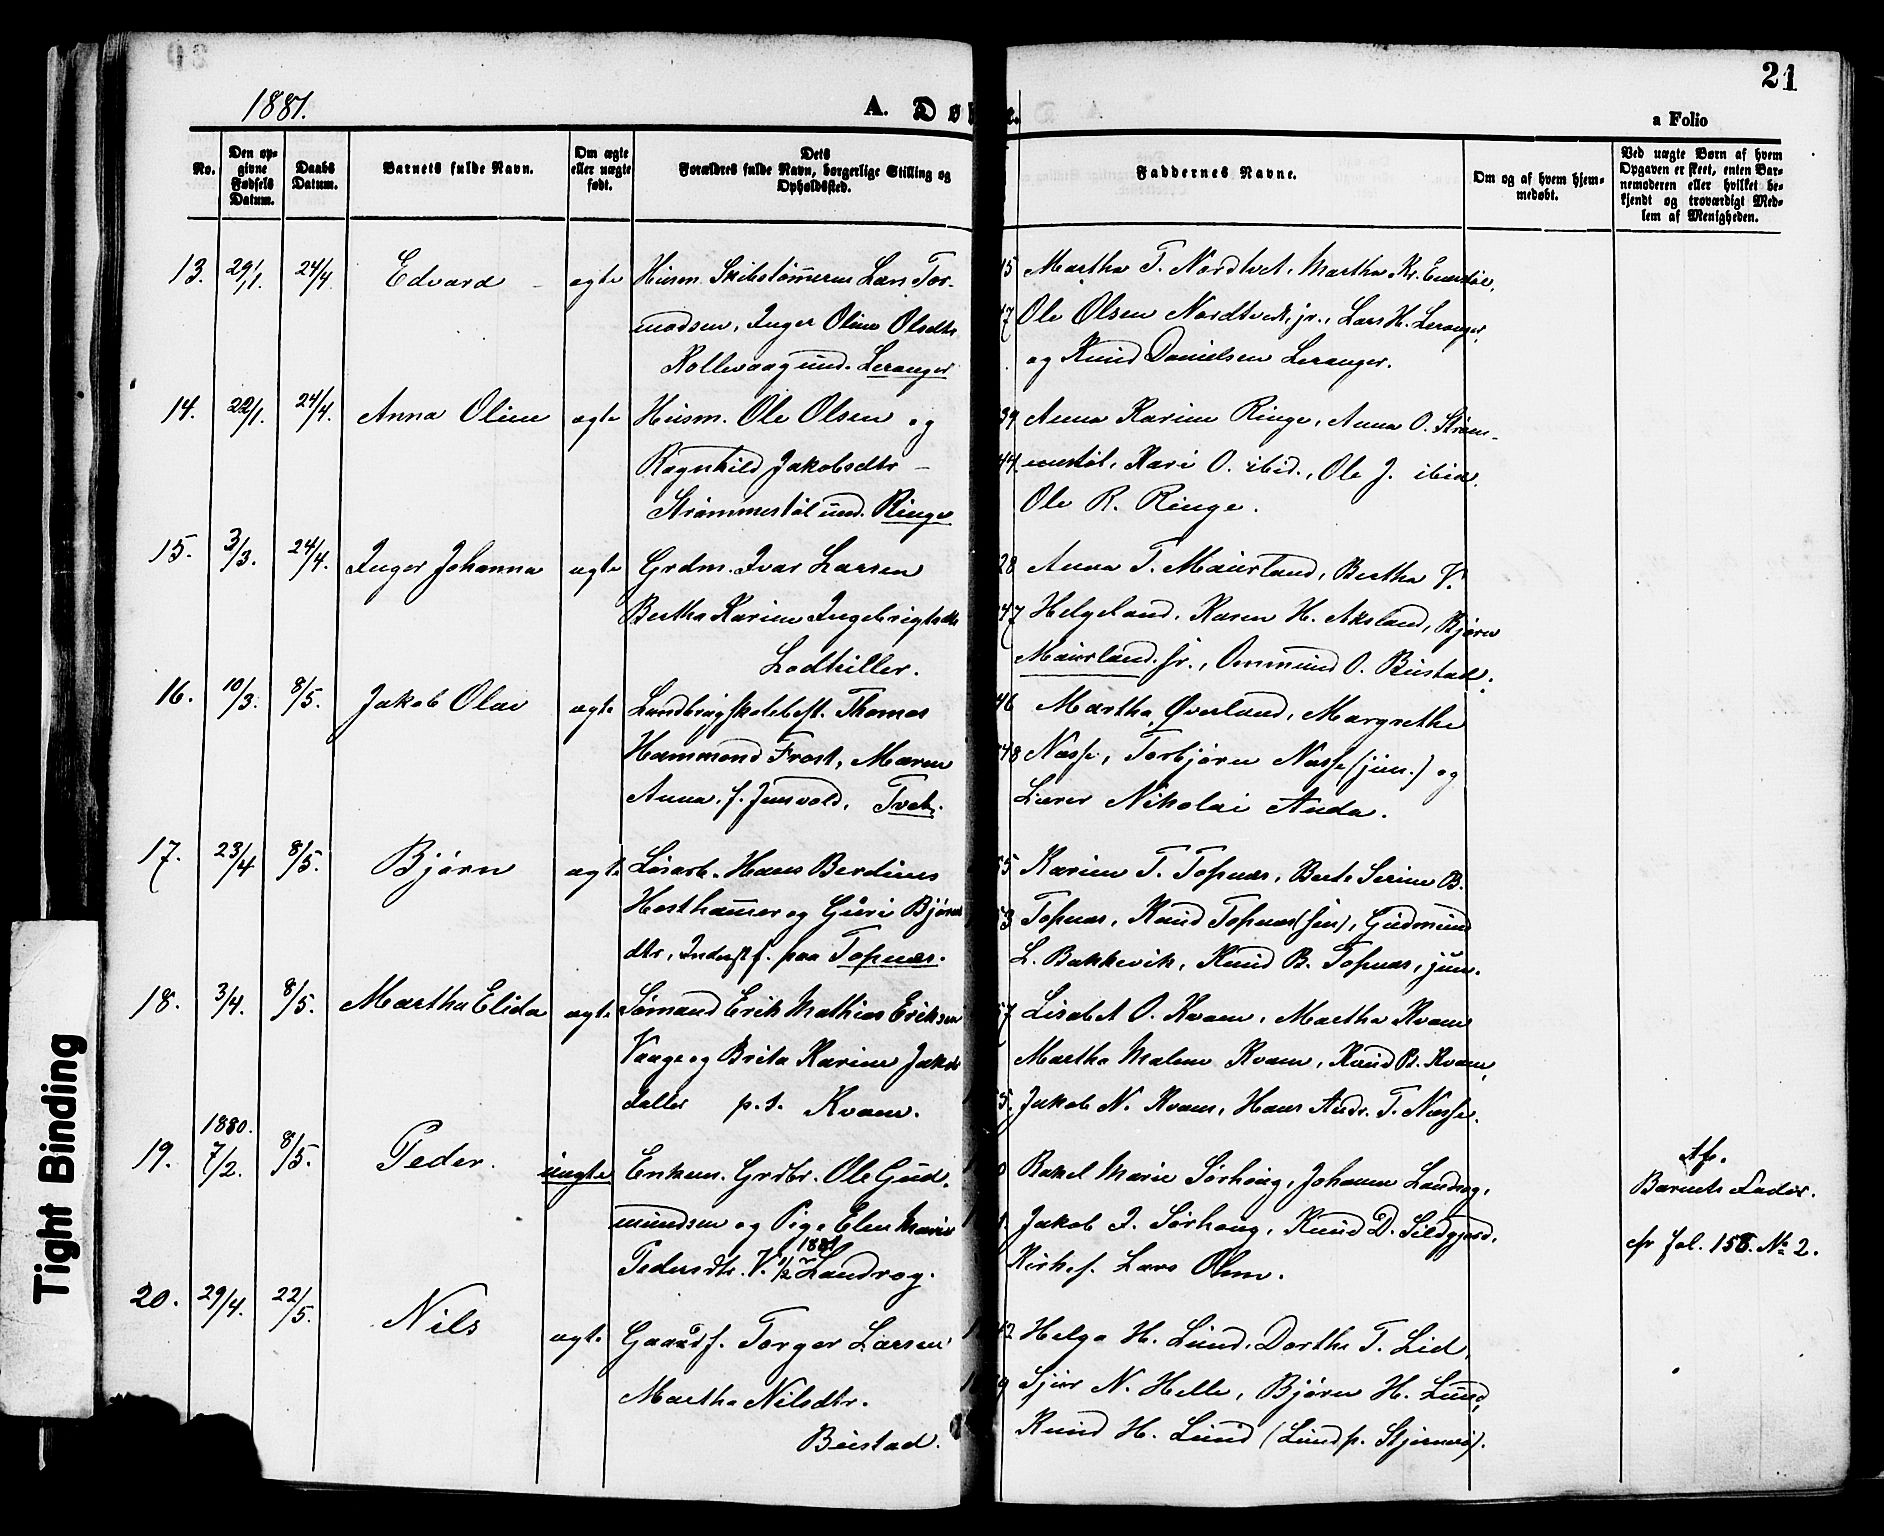 21
1881.
A. Dø
a Folio
No.
Den op-
givne
Fødsels
Datum.
Daabs
Datum.
Barnets fulde Navn.
Om ægte
eller uægte
født.
Dets
Forældres fulde Navn, borgerlige Stilling og
Opholdssted.
Faddernes Navne.
Om og af hvem hjem-
medøbt.
Ved uægte Børn af hvem
Opgaven er skeet, enten Bar-
nemoderen eller hvilket be-
kjendt og troværdigt Med-
lem af Menigheden.
13. 29/1. 24/4. Edvard ægte Husm. Skibstømmerm Lars Tor-
modsen, Inger Oline Olsdtr
Rollevaag und. Leranger
Martha T. Nordtvet, Martha Kr.
Ole Olsen Nordtvedt, jr., Lars H. Leranger,
og Knud Danielsen Leranger.
14. 22/1. 24/4. Anna Oline ægte Husm. Ole Olsen og
Ragnhild Jakobsdtr –
Strømmestøl und. Ringe
39 Anna Karine Ringe, Anna O. Strøm-
44 mestøl, Kari O. ibid., Ole J. ibid.
Ole R. Ringe.
15. 3/3. 24/4. Inger Johanna ægte Grdm. Ivar Larsen
Bertha Karine Ingebrigtsdtr
Lodhiller.
28 Anna T. Maurland, Bertha V.
47 Helgeland, Karen H. Aksland, Bjørn
Maurland. sr., Ommund O. Bustad.
16. 10/3. 8/5. Jakob Olai ægte Landbrugskolebest. Thomas
Hammond Frost, Maren
Anna, f. Jensvold, Tvet.
46 Martha Øverland, Margrethe
48 Næsse, Torbjørn Næsse (jun.) og
Lærer Nikolai Auda.
17. 23/4 8/5. Bjørn ægte Løsarb. Hans Berdines
Hosthammer og Guri Bjørns
dtr, Inderstf. paa Topnæs.
55 Karine T. Topnæs, Berte Serine B.
53 Topnæs, Knud Topnæs (sen), Gudmund
L. Bakkevik, Knud B. Topnæs, jun.
18. 3/4. 8/5. Martha Elida ægte Sømand Erik Mathias Eriksen
Vaage og Brita Karine Jakobs
datter p. t. Kvam.
57 Lisabet O. Kvam, Martha Kvam
Martha Malene Kvam, Knud B. Kvam,
55. Jakob N. Kvam, Hans Andr. T. Næsse.
1880.
19. 7/2. 8/5. Peder. uægte Enkem. Grdbr. Ole Gud-
mundsen og Pige Elen Marie
Pedersdtr. V. 1/2 1881 Landrog.
Rakel Marie Sørhoug, Johanne Landrog,
Jakob I. Sørhoug, Knud D. Sildgjerd,
Kirkes. Lars Ohm.
Af.
Barnets Fader.
cfr fol. 158. No 2.
20. 29/4. 22/5. Nils ægte Gaardf. Torger Larsen
Martha Nilsdtr.
Bustad.
Helga H. Lund, Dorthe T. Lid,
Sjur N. Helle, Bjørn H. Lund,
Knud H. Lund (Lund p. Stjernerø).
Tight Binding